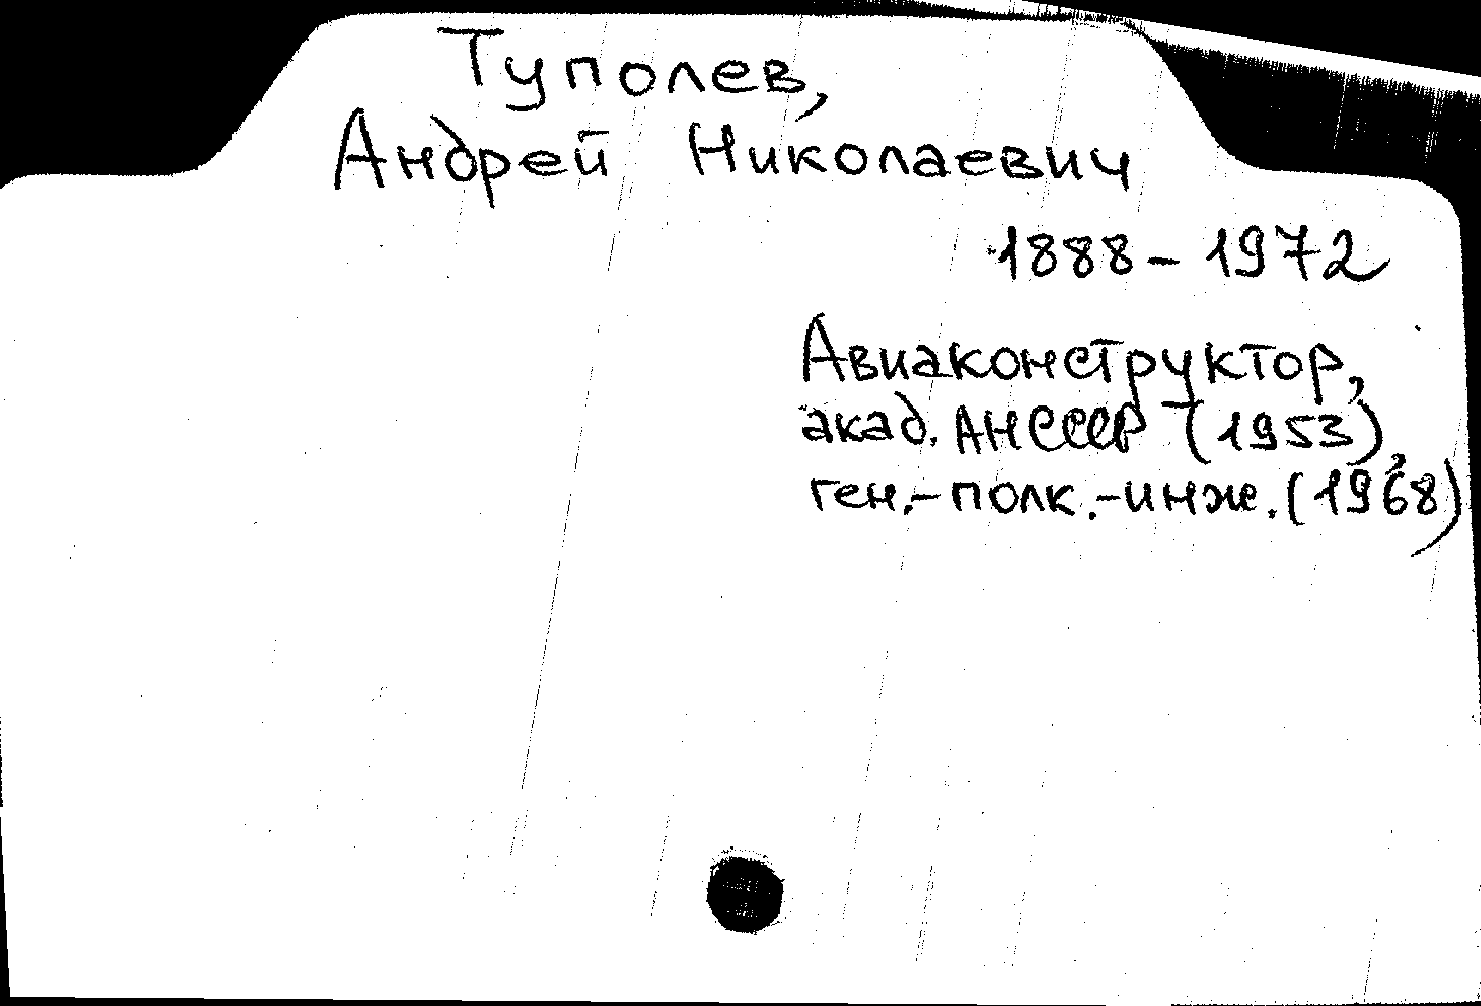 Туполев,
Андрей Николаевич
1888-1972
Авиаконструктор,
акад. АН СССР (1953),
ген.-полк.-инж. (1968)